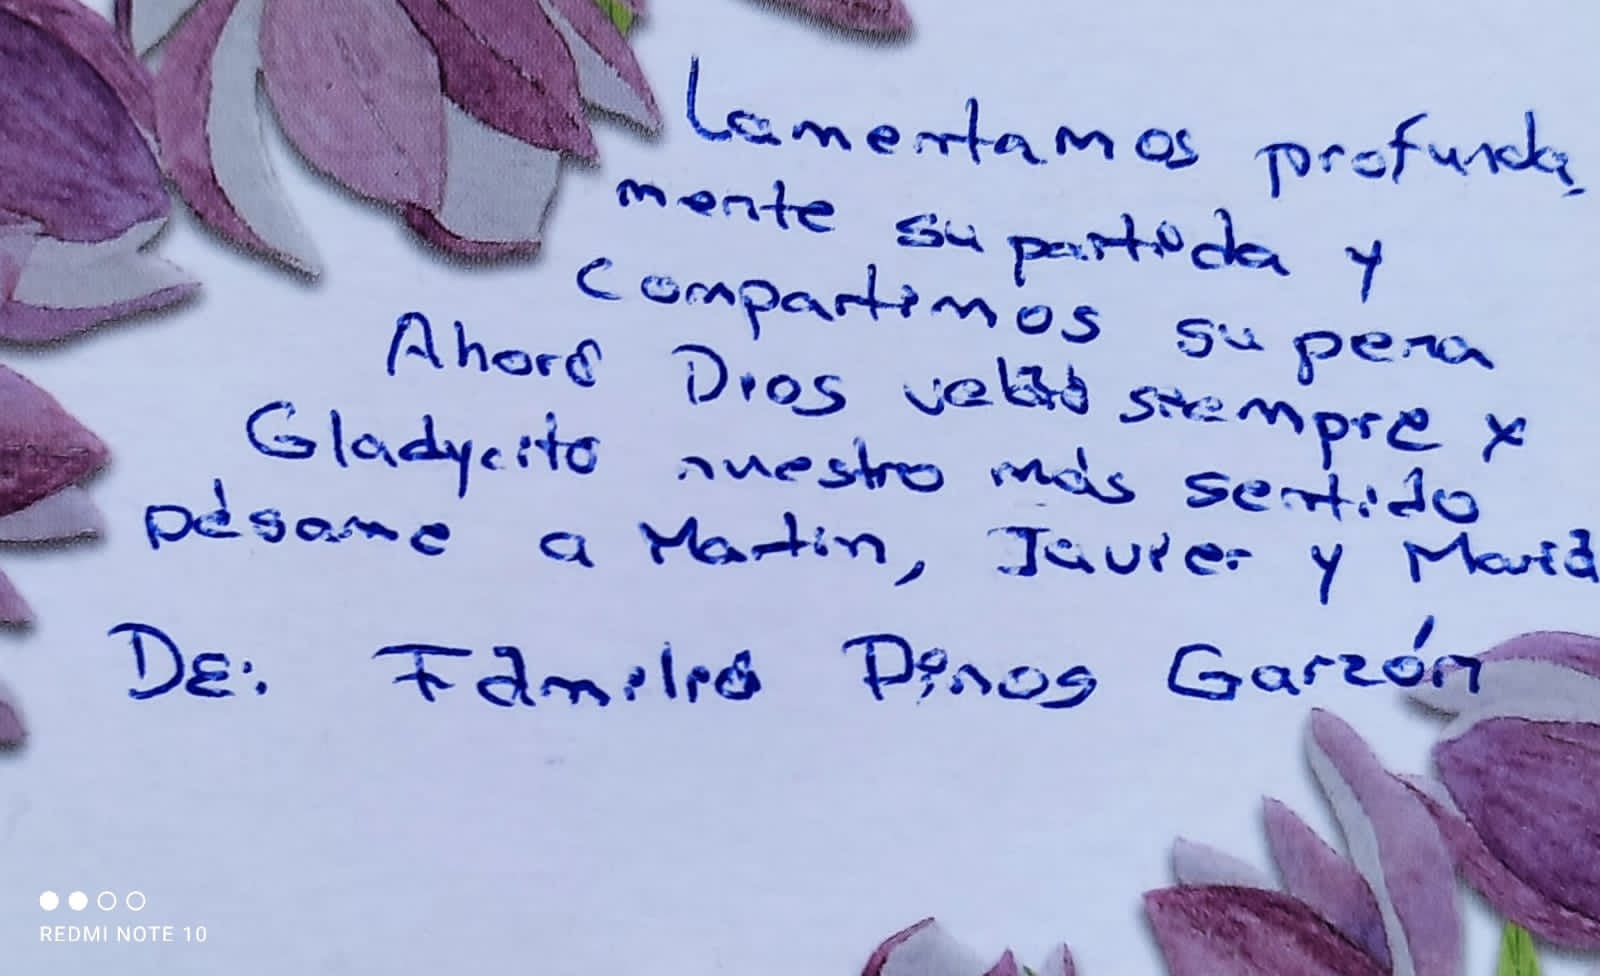 Lamentamos profunda
mente su partida y
compartimos su pena
Ahora Dios siempre x
Gladycita nuestro más sentido
pésame a Martin, Javier y María
DE: Familia Pinos Garzón
REDMI NOTE 10